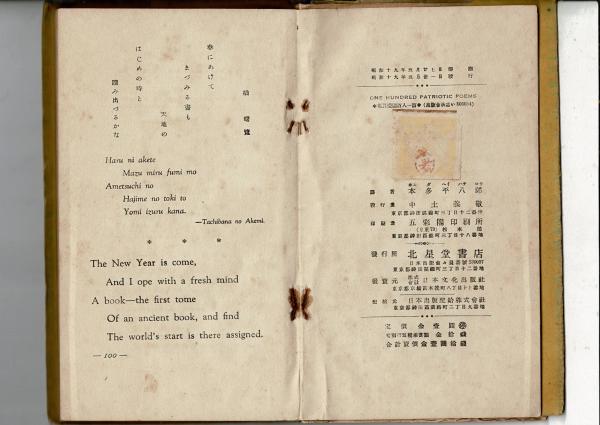 橘曙覽
春にあけて
まづみる書も
天地の
はじめの時と
讀み出づるかな
Haru ni akete
Mazu miru fumi mo
Ametsuchi no
Hajime no toki to
Yomi izuru kana.
—Tachibana no Akemi.
* * *
The New Year is come,
And I ope with a fresh mind
A book—the first tome
Of an ancient book, and find
The world's start is there assigned.
— 100 —
昭和十九年五月廿七日 印刷
昭和十九年五月卅一日 發行
ONE HUNDRED PATRIOTIC POEMS
譯者 本多平八郎
發行者 中土義敬
東京都神田區錦町三丁目十二番地
印刷者 五彩閣印刷所
發行所 北星堂書店
東京都神田區錦町三丁目十二番地
株式會社 日本文化出版社
配給元 日本出版配給株式會社
東京都神田區淡路町二丁目九番地
定價金壹圓
金拾錢
合計賣價金壹圓拾錢